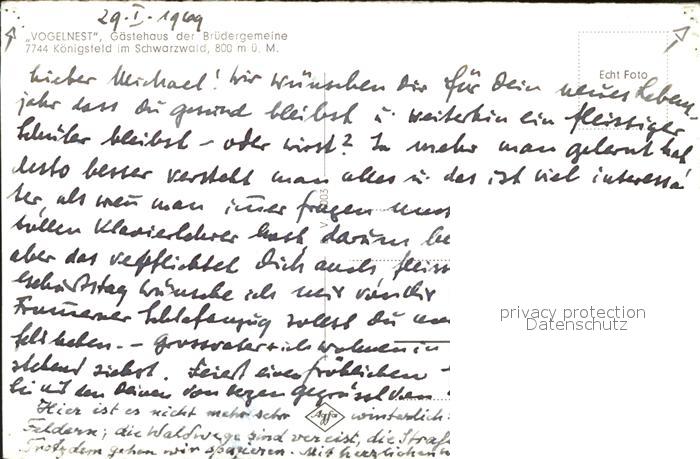 29. I. 1969
„VOGELNEST", Gästehaus der Brüdergemeine
7744 Königsfeld im Schwarzwald, 800 m ü. M.
Echt Foto
Lieber Michael! Wir wünschen Dir für Dein neues Lebens-
jahr dass Du gesund bleibst u. weiterhin ein fleissiger
Schüler bleibst – oder wirst? Je mehr man gelernt hat
desto besser versteht man alles u. das ist viel interessa
ter, als wenn man immer fragen muss
tollen Klavierlehrer hast, darum be
aber das verpflichtet Dich auch fleiss
burtstag wünsche ich mir von Dir
Schlafanzug sollst Du
– Grossvater u. ich wohnen in
stehend siehst. Feiert einen fröhlichen
Sei mit den Deinen von Herzen gegrüsst von
Hier ist es nicht mehr sehr winterlich:
Agfa
Feldern; die Waldwege sind vereist, die Straß
Trotzdem gehen wir spazieren. Mit herzlichen
privacy protection
Datenschutz